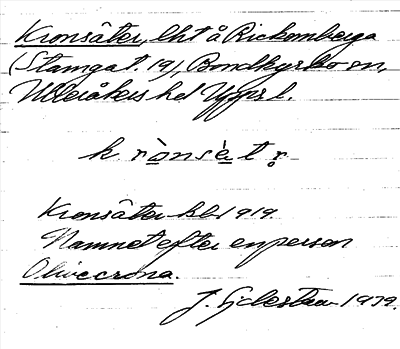 Kronsäter, lht å Rickomberga
(Stamga t. 19), Bondkyrko sn,
Ulleråkers hd Upps l.
k rònsèt r
Kronsäter kbr 1919.
Namnet efter en person
Olivecrona.
J. 1979.